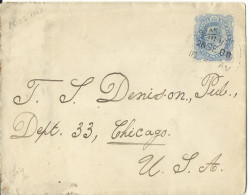 T. S. Denison, Pub.,
Dept. 33, Chicago.
U. S. A.